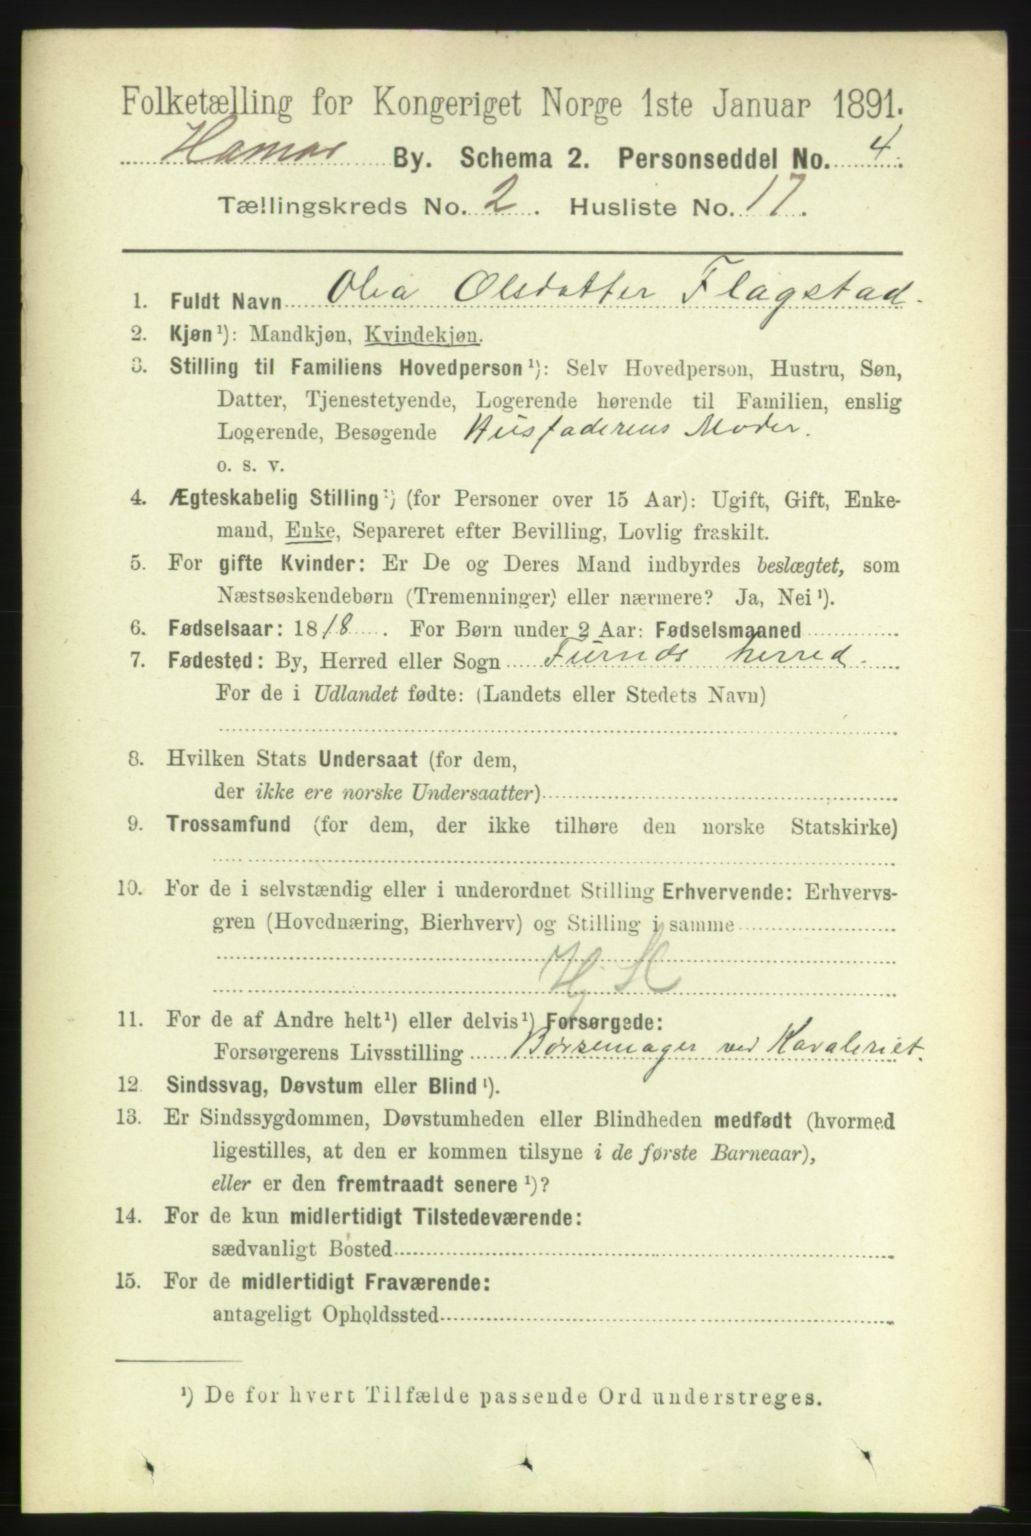 Folketælling for Kongeriget Norge 1ste Januar 1891.
Hamar By. Schema 2. Personseddel No. 4.
Tællingskreds No. 2. Husliste No. 17.
1. Fuldt Navn Olea Olsdatter Flagstad.
2. Kjøn¹): Mandkjøn, Kvindekjøn.
3. Stilling til Familiens Hovedperson¹): Selv Hovedperson, Hustru, Søn,
Datter, Tjenestetyende, Logerende hørende til Familien, enslig
Logerende, Besøgende Husfaderens Moder.
o. s. v.
4. Ægteskabelig Stilling¹) (for Personer over 15 Aar): Ugift, Gift, Enke-
mand, Enke, Separeret efter Bevilling, Lovlig fraskilt.
5. For gifte Kvinder: Er De og Deres Mand indbyrdes beslægtet, som
Næstsøskendebørn (Tremenninger) eller nærmere? Ja, Nei¹).
6. Fødselsaar: 1818. For Børn under 2 Aar: Fødselsmaaned
7. Fødested: By, Herred eller Sogn Furnds herred.
For de i Udlandet fødte: (Landets eller Stedets Navn)
8. Hvilken Stats Undersaat (for dem,
der ikke ere norske Undersaatter)
9. Trossamfund (for dem, der ikke tilhøre den norske Statskirke)
10. For de i selvstændig eller i underordnet Stilling Erhvervende: Erhvervs-
gren (Hovednæring, Bierhverv) og Stilling i samme
11. For de af Andre helt¹) eller delvis¹) Forsørgede:
Forsørgerens Livsstilling Børsemager ved Kavaleriet.
12. Sindssvag, Døvstum eller Blind¹).
13. Er Sindssygdommen, Døvstumheden eller Blindheden medfødt (hvormed
ligestilles, at den er kommen tilsyne i de første Barneaar),
eller er den fremtraadt senere¹)?
14. For de kun midlertidigt Tilstedeværende:
sædvanligt Bosted
15. For de midlertidigt Fraværende:
antageligt Opholdssted
¹) De for hvert Tilfælde passende Ord understreges.